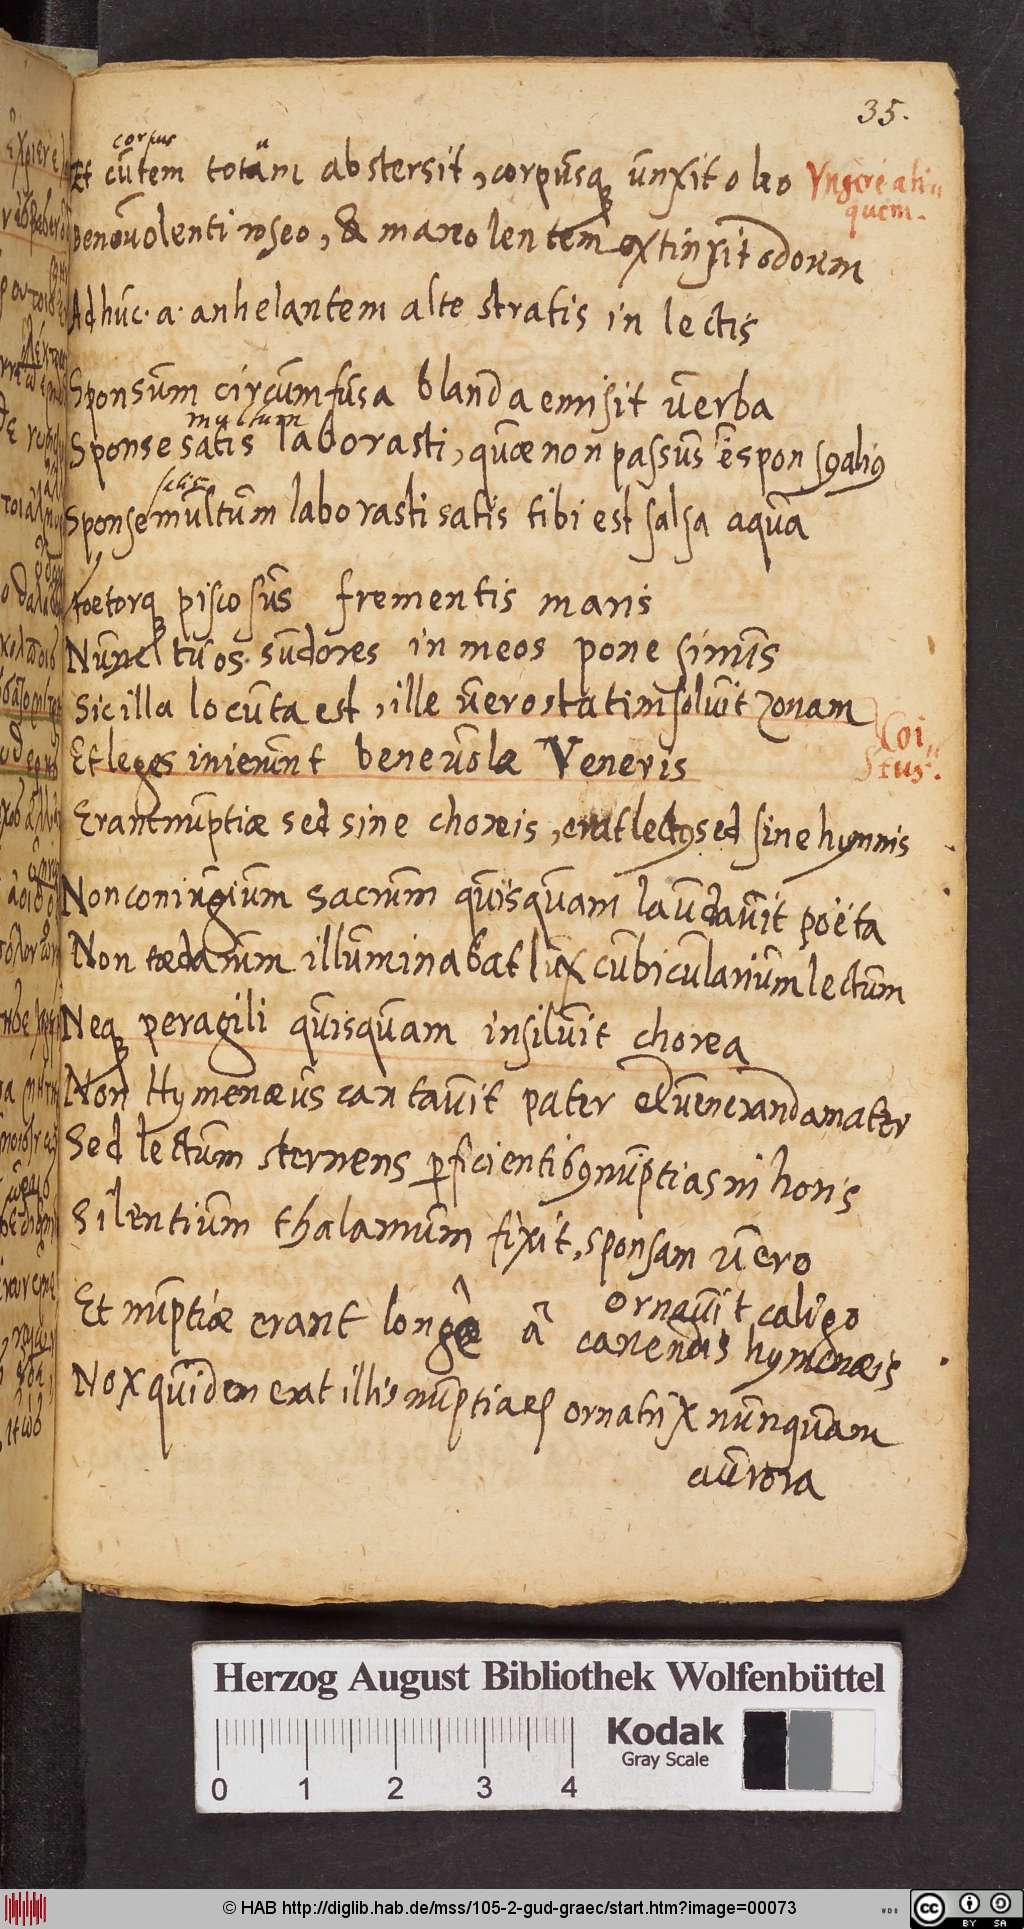 35.
corpus
Et cutem totam abstersit, corpusq unxit oleo
Ungere ali„
quem.
Benevolenti roseo, & mareolentem extinxit odorem
Adhuc. a. anhelantem alte stratis in lectis
Sponsum circumfusa blanda emisit verba
multum
Sponse satis laborasti, quae non passus e sponsus alius
satis
Sponse multum laborasti satis tibi est salsa aqua
foetorq piscosus frementis maris
Nunc tuos sudores in meos pone sinus
Sic illa locuta est, ille vero statim solvit zonam
Coi„
tus.
Et leges inierunt benevolae Veneris
Erant nuptiae sed sine choreis, erat lectus sed sine hymnis
Non coniugium sacrum quisquam laudavit poëta
Non taedarum illuminabat lux cubicularium lectum
Neq peragili quisquam insiluit chorea
Non Hymenaeus cantavit pater et veneranda mater
Sed lectum sternens perficientibus nuptias in horis
Silentium thalamum fixit, sponsam vero
ornavit caligo
Et nuptiae erant longe à canendis hymenaeis
Nox quidem erat illis nuptiaes ornatrix nunquam
aurora
Herzog August Bibliothek Wolfenbüttel
Kodak
Gray Scale
0 1 2 3 4
© HAB http://diglib.hab.de/mss/105-2-gud-graec/start.htm?image=00073
WDB
cc BY SA